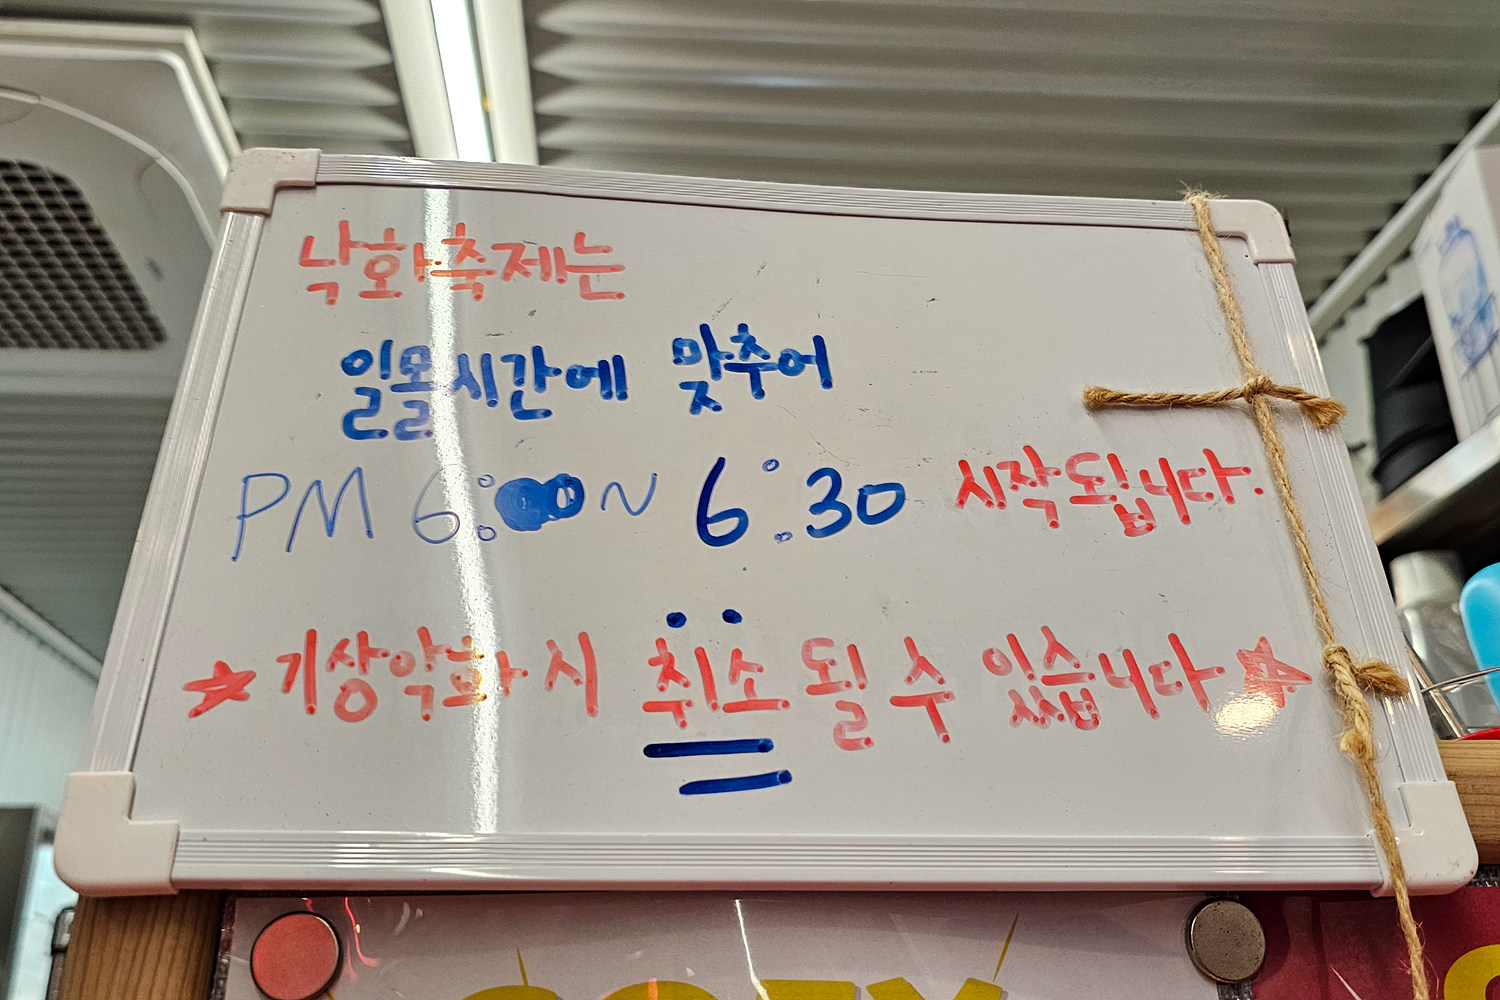 낙화축제는
일몰시간에 맞추어
PM 6:00 ~ 6:30 시작됩니다.
☆기상악화 시 취소 될 수 있습니다☆